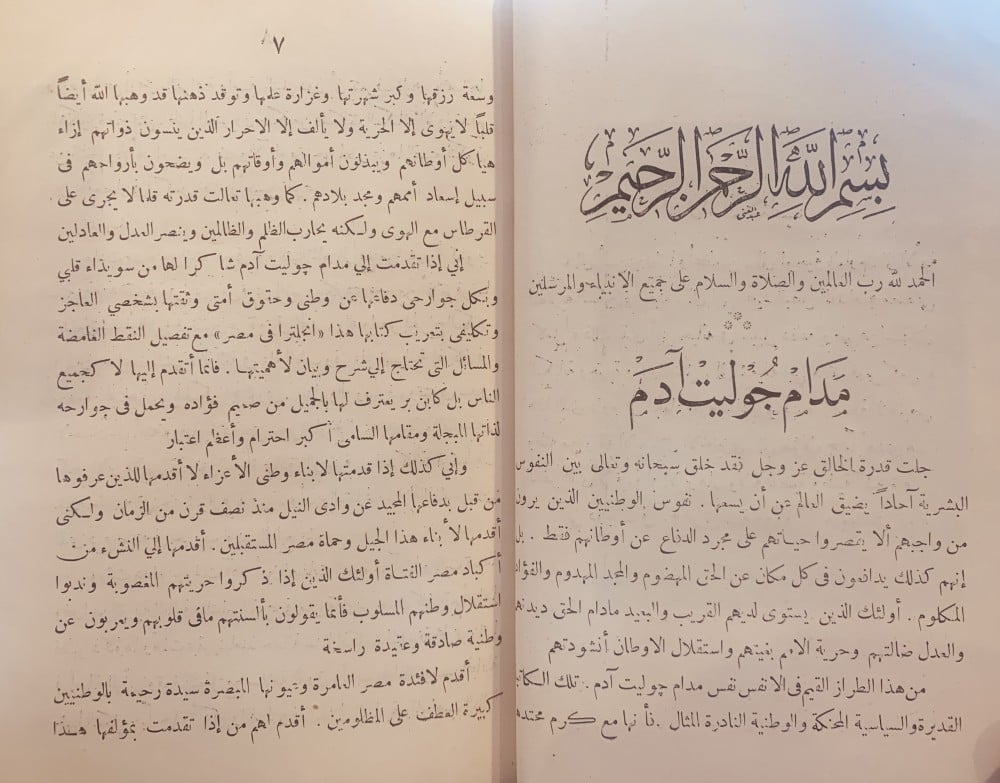 بسم الله الرحمن الرحيم
الحمد لله رب العالمين والصلاة والسلام على جميع الانبياء والمرسلين
مدام جوليت آدم
جلت قدرة الخالق عز وجل فقد خلق سبحانه وتعالى بين النفوس
البشرية آحاداً يضيق العالم عن أن يسعها . نفوس الوطنيين الذين يرون
من واجبهم ألا يقتصروا حياتهم على مجرد الدفاع عن أوطانهم فقط . بل
إنهم كذلك يدافعون فى كل مكان عن الحق المهضوم والمجد المهدوم والفؤاد
المكلوم . أولئك الذين يستوى لديهم القريب والبعيد مادام الحق ديدنهم
والعدل ضالتهم وحرية الامم بغيتهم واستقلال الاوطان أنشودتهم
من هذا الطراز القيم فى الانفس نفس مدام چوليت آدم . تلك الكاتبة
القديرة والسياسية المحنكة والوطنية النادرة المثال . فأنها مع كرم محتدها
٧
وسعة رزقها وكبر شهرتها وغزارة علمها وتوقد ذهنها قد وهبها الله أيضاً
قلباً لايهوى إلا الحرية ولا يألف إلا الاحرار الذين ينسون ذواتهم إزاء
هياكل أوطانهم ويبذلون أموالهم وأوقاتهم بل ويضحون بأرواحهم فى
سبيل إسعاد أممهم ومجد بلادهم . كما وهبها تعالت قدرته قلما لا يجرى على
القرطاس مع الهوى ولكنه يحارب الظلم والظالمين وينصر العدل والعادلين
إني إذا تقدمت إلي مدام چوليت آدم شاكرا لها من سويداء قلبي
وبكل جوارحى دفاعها عن وطنى وحقوق أمتى وثقتها بشخصي العاجز
وتكليفى بتعريب كتابها هذا «انجلترا فى مصر» مع تفصيل النقط الغامضة
والمسائل التى تحتاج إلي شرح وبيان لأهميتها . فانما أتقدم إليها لا كجميع
الناس بل كابن بر يعترف لها بالجميل من صميم فؤاده ويحمل فى جوارحه
لذاتها المبجلة ومقامها السامى أكبر احترام وأعظم اعتبار
وإني كذلك إذا قدمتها لابناء وطنى الأعزاء لا أقدمها للذين عرفوها
من قبل بدفاعها المجيد عن وادى النيل منذ نصف قرن من الزمان ولكنى
أقدمها لأبناء هذا الجيل وحماة مصر المستقبلين . أقدمها إلي النشء من
أكباد مصر الفتاة أولئك الذين إذا ذكروا حريتهم المغصوبة وندبوا
استقلال وطنهم المسلوب فأنما يقولون بألسنتهم مافى قلوبهم ويعربون عن
وطنية صادقة وعقيدة راسخة
أقدم لافئدة مصر العامرة وعيونها المبصرة سيدة رحيمة بالوطنيين
كبيرة العطف على المظلومين . أقدم لهم من إذا تقدمت بمؤلفها هذا